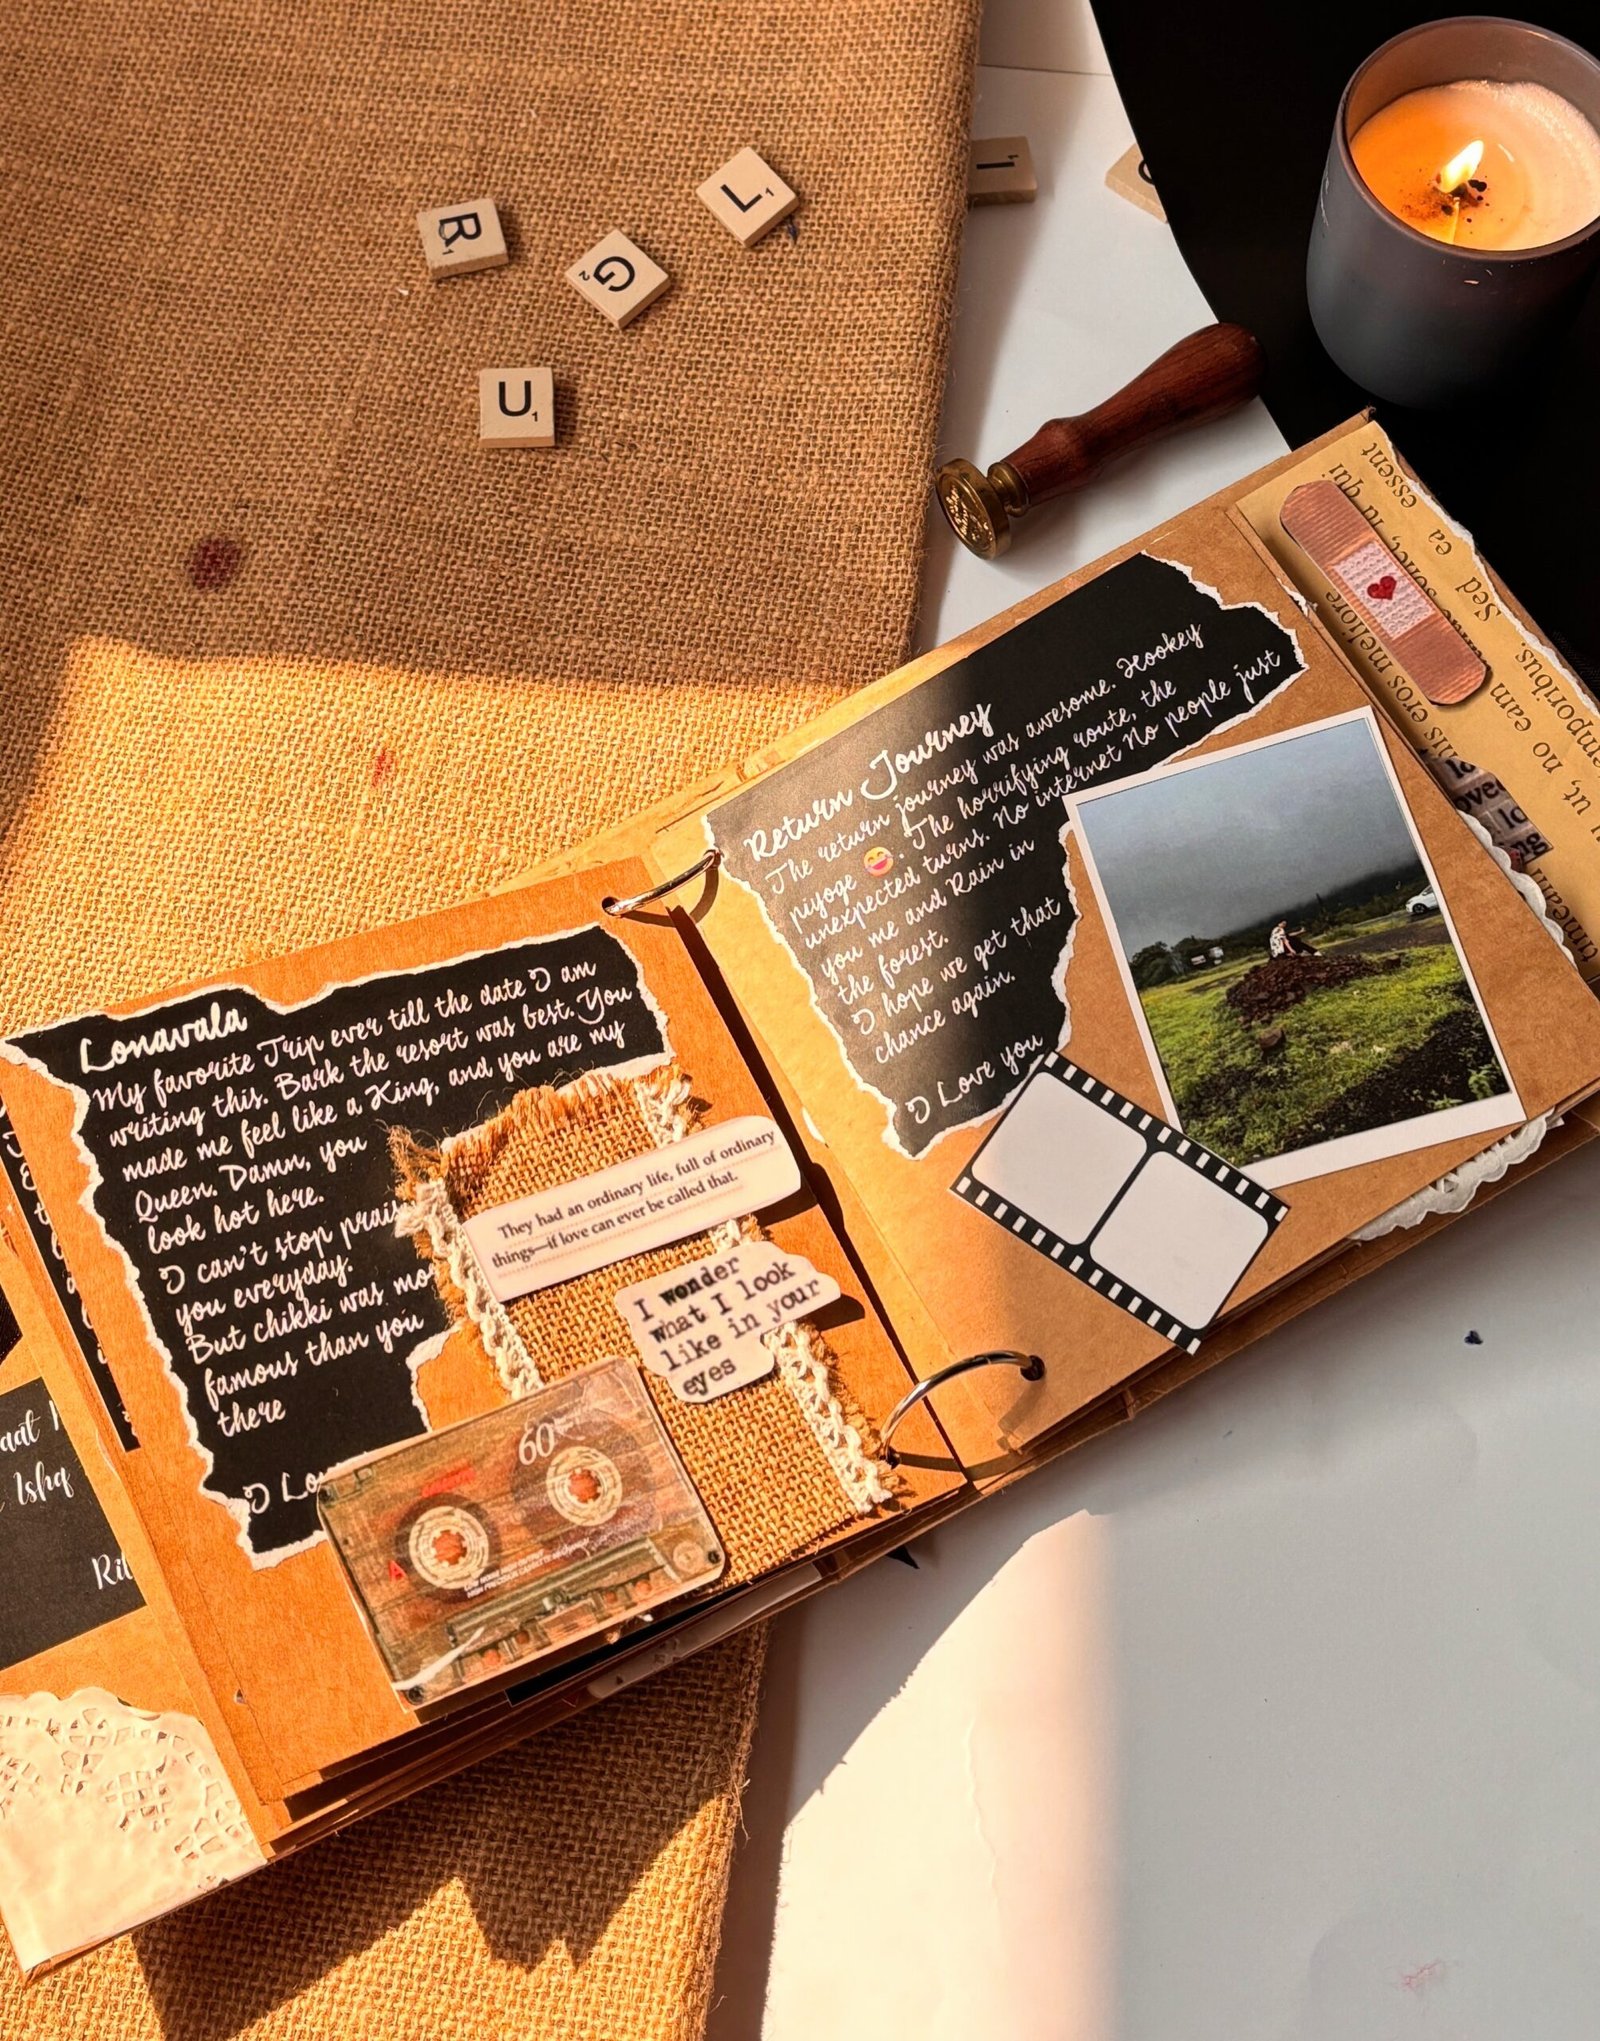 R1
G2
L1
I1
U1
Lonavala
My favorite Trip ever till the date I am
writing this. Bark the resort was best. You
made me feel like a King, and you are my
Queen. Damn, you
look hot here.
I can't stop prais
you everyday.
But chikki was mo
famous than you
there
I Lov
They had an ordinary life, full of ordinary
things—if love can ever be called that.
I wonder
what I look
like in your
eyes
60
A
Return Journey
The return journey was awesome. Hookey
piyoge 😂. The horrifying route, the
unexpected turns. No internet No people just
you me and Rain in
the forest.
I hope we get that
chance again.
I Love you
essent
ea
Sed
his eros meliore
emporibus.
ut, no eam
aat
Ishq
Rit